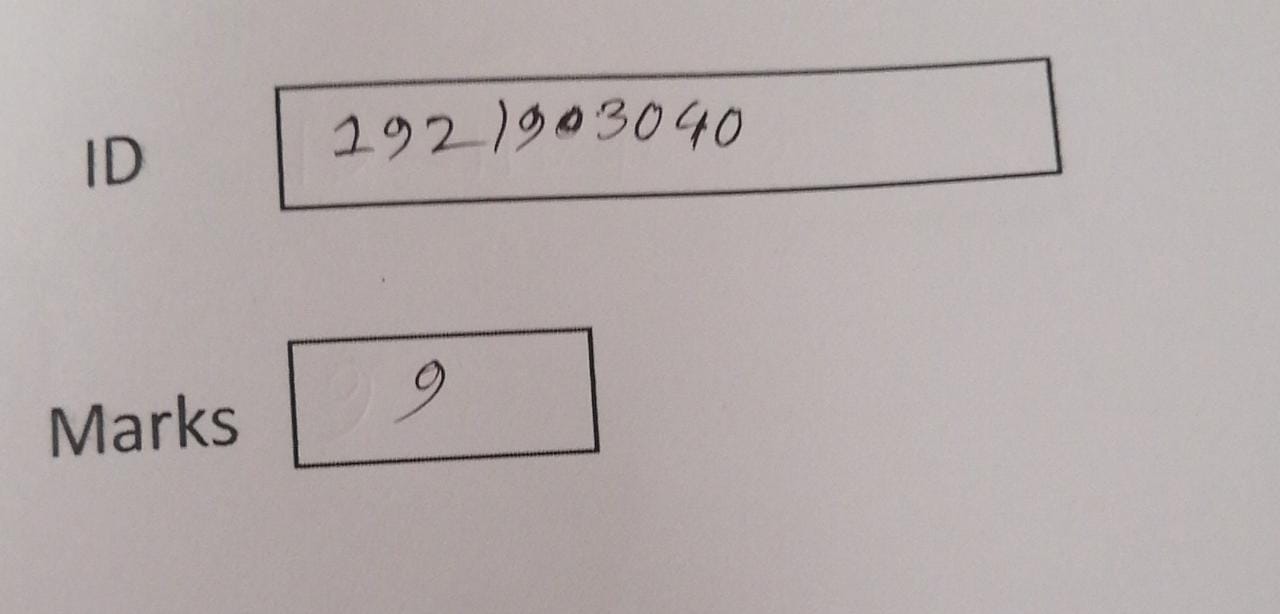 ID 1921903040
Marks 9